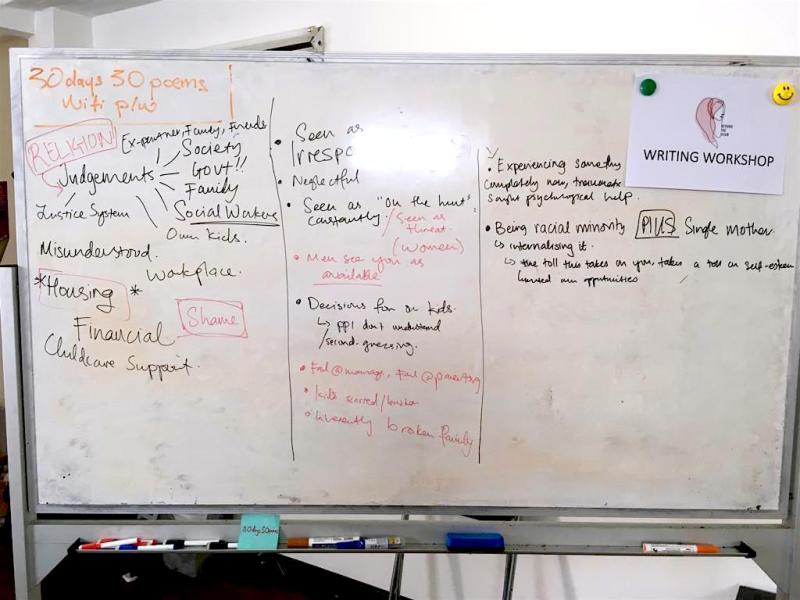 30 days 30 poems
Wifi p/w
RELIGION
Ex-partner, Family, Friends
Society
Judgements
Govt!!
Family
Justice System
Social Workers
Own kids.
Misunderstood.
Workplace.
*Housing*
Shame
Financial
Childcare Support.
• Seen as
Irrespo
• Neglectful
• Seen as "on the hunt"
constantly.
/Seen as
threat.
(women)
• Men see you as
available
• Decisions for our kids.
↳ ppl don't understand
/second-guessing.
• Fail @ marriage, Fail @ parenting
• Kids scarred/broken
• Inherently broken family
• Experiencing something
completely new, traumatic
sought psychological help.
• Being racial minority PLUS Single mother.
↳ internalising it.
↳ the toll this takes on you, takes a toll on self-esteem
limited own opportunities
BEYOND
THE
HIJAB
WRITING WORKSHOP
30 days 30 poems